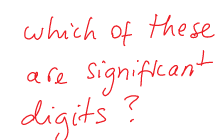 which of these
are significant
digits ?